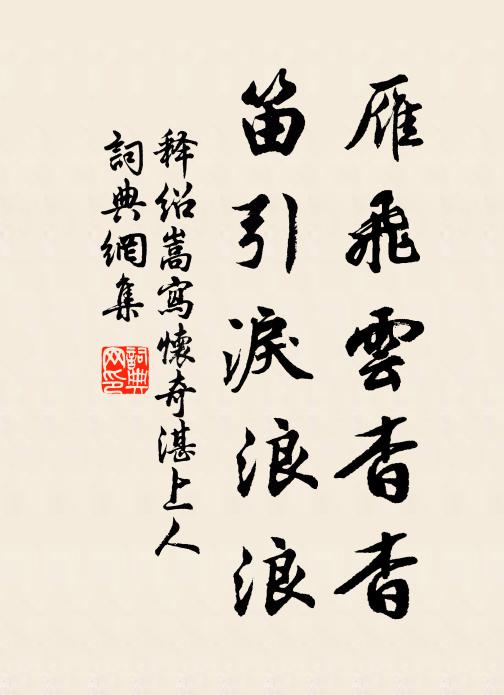 雁飛雲杳杳
笛引淚浪浪
释绍嵩寫懷奇湛上人
詞典網集
詞典网印